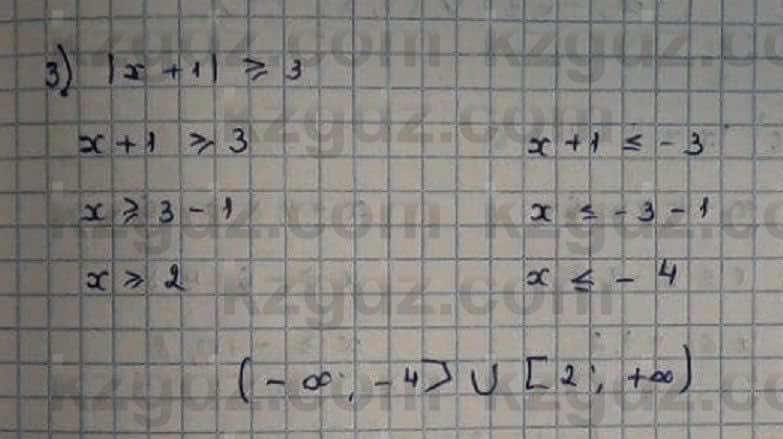 3) |x + 1| ⩾ 3
x + 1 ⩾ 3 x + 1 ≤ - 3
x ⩾ 3 - 1 x ≤ - 3 - 1
x ⩾ 2 x ≤ - 4
(- ∞; - 4] ∪ [2; +∞)
kzgdz.com